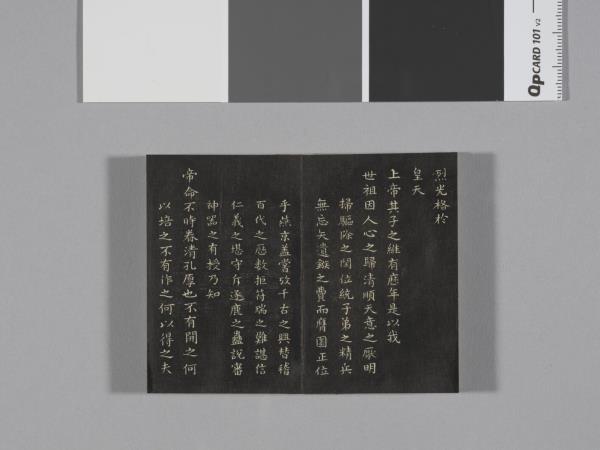 QpCARD 101 v2
烈光格於
皇天
上帝其子之繼有歷年是以我
世祖因人心之歸清順天意之厭明
掃驅除之閏位統子弟之精兵
無忘矢遺鏃之費而膺圖正位
乎燕京蓋嘗攷千古之興替稽
百代之歷數拒符瑞之難諶信
仁義之堪守斥逐鹿之蠱說審
神器之有授乃知
帝命不時眷清孔厚也不有開之何
以培之不有作之何以得之夫